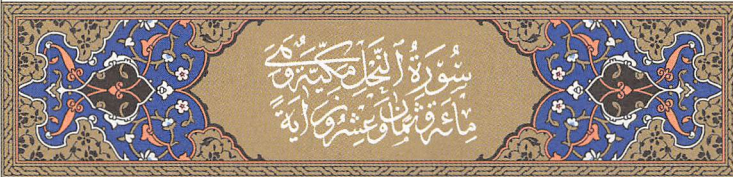 سُورَةُ ٱلنَّحْلِ مَكِّيَّةٌ وَهِيَ
مِائَةٌ وَثَمَانٍ وَعِشْرُونَ آيَةً